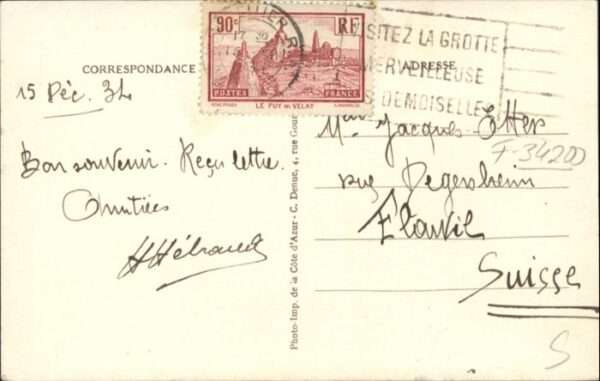 CORRESPONDANCE
15 Déc. 34
Bon souvenir. Reçu lettre.
Amitiés
HHébraud
90c RF
POSTES FRANCE
LE PUY EN VELAY
VISITEZ LA GROTTE
MERVEILLEUSE
DEMOISELLES
ADRESSE
Jacques Etter
F-34200
Degersheim
Flawil
Suisse
S
Photo-Imp. de la Côte d'Azur - C. Denue, 4, rue Gour